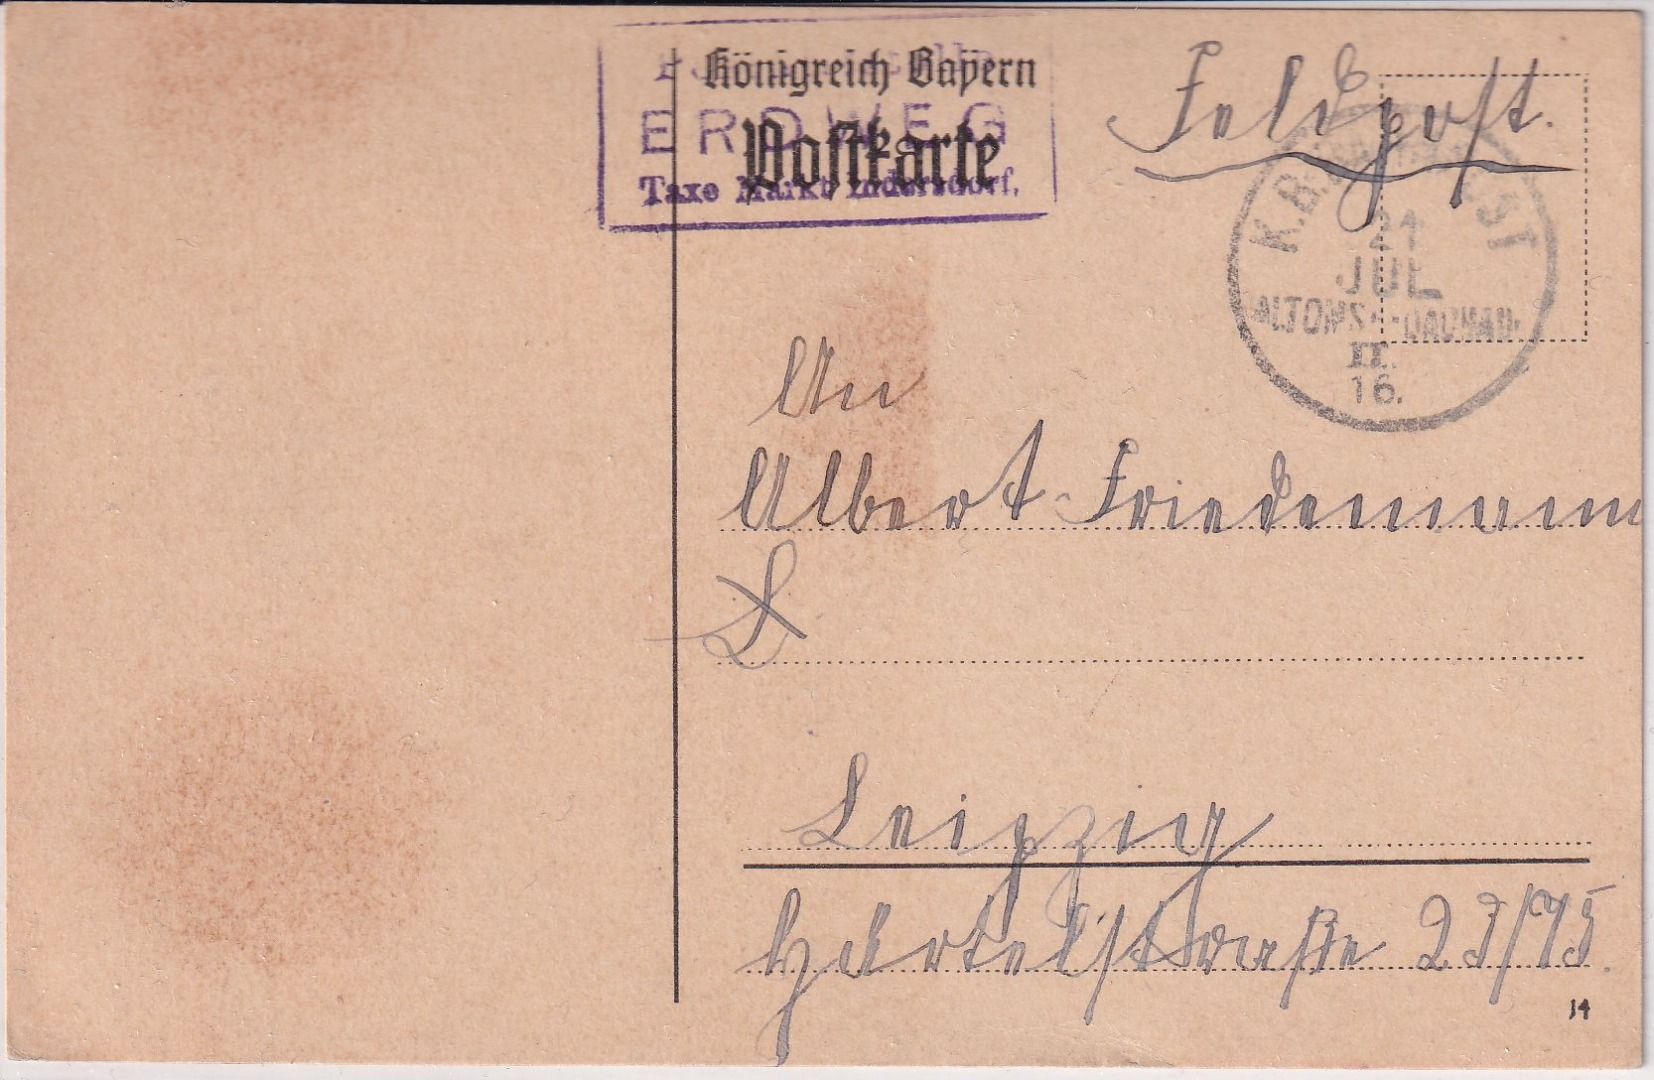 Königreich Bayern
Postkarte
ERDWEG
Taxe Markt Indersdorf.
Feldpost.
K.B.
POST
21
JUL
ALTOMS.-DACHAU
II.
16.
An
Albert Friedemann
L
Leipzig
Härtelstraße 23/75.
14